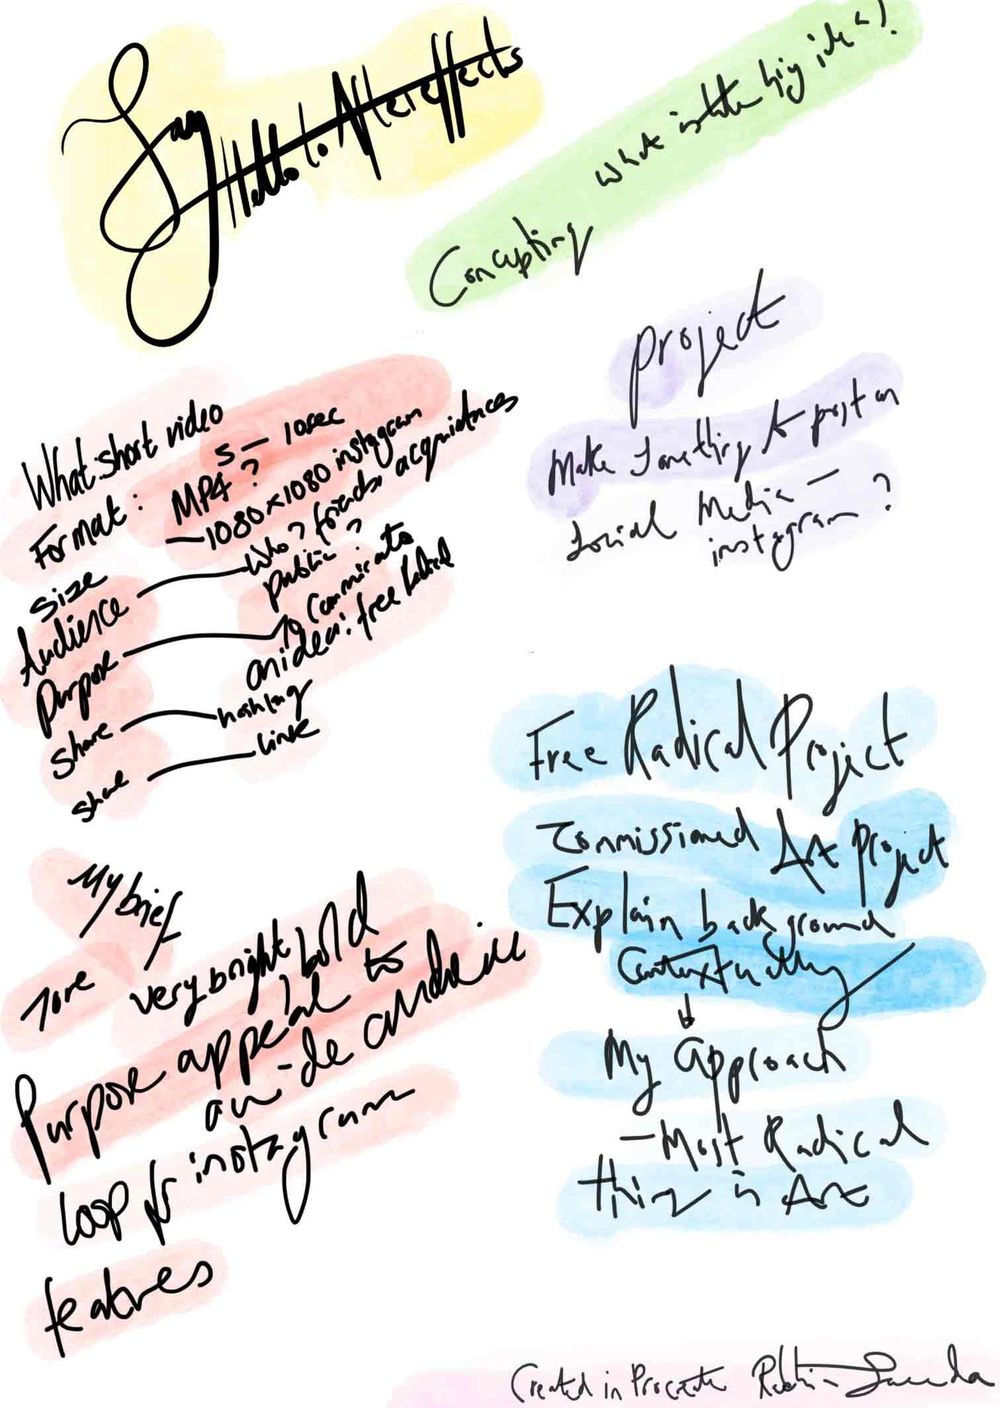 Say Hello to Aftereffects
Concepting what is the big idea?
project
Make Something to post on
Social Media –
instagram ?
What short video
5 – 10sec
Format : MP4 ?
Size – 1080×1080 instagram
Audience Who? friends acquintances
public ?
Purpose to Commicate
an idea: free Radical
Share hashtag
Share link
My brief
Tone very bright bold
Purpose appeal to
a wide audience
loop for instagram
features
Free Radical Project
Commissioned Art Project
Explain background
Contextually
My Approach
– Most Radical
thing is Art
Created in Procreate